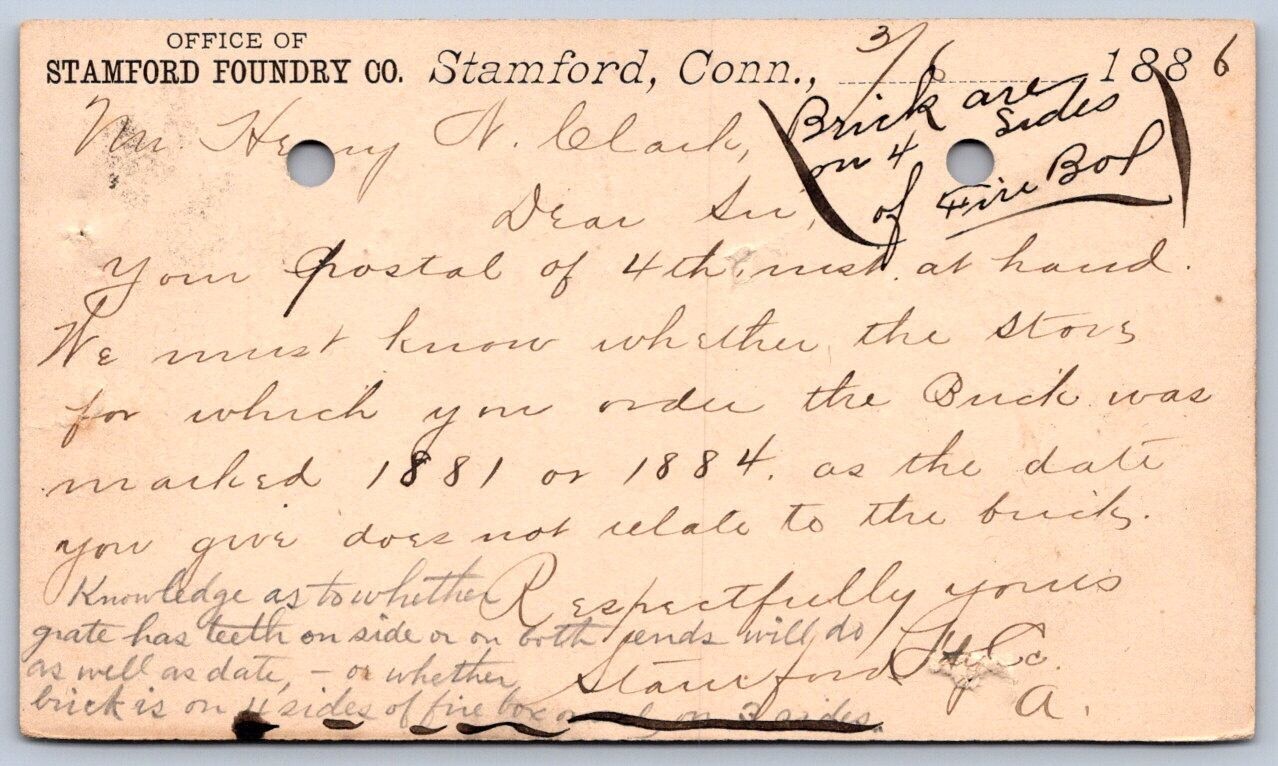 OFFICE OF
STAMFORD FOUNDRY CO. Stamford, Conn., 3/6 1886
Mr Henry N. Clark,
(Brick are
on 4 sides
of Fire Box)
Dear Sir,
Your Postal of 4th inst. at hand.
We must know whether the stove
for which you order the Brick was
marked 1881 or 1884. as the date
you give does not relate to the brick.
Respectfully yours
Stamford Fy Co.
A.
Knowledge as to whether
grate has teeth on side or on both ends will do
as well as date, - or whether
brick is on 4 sides of fire box or on 3 sides.